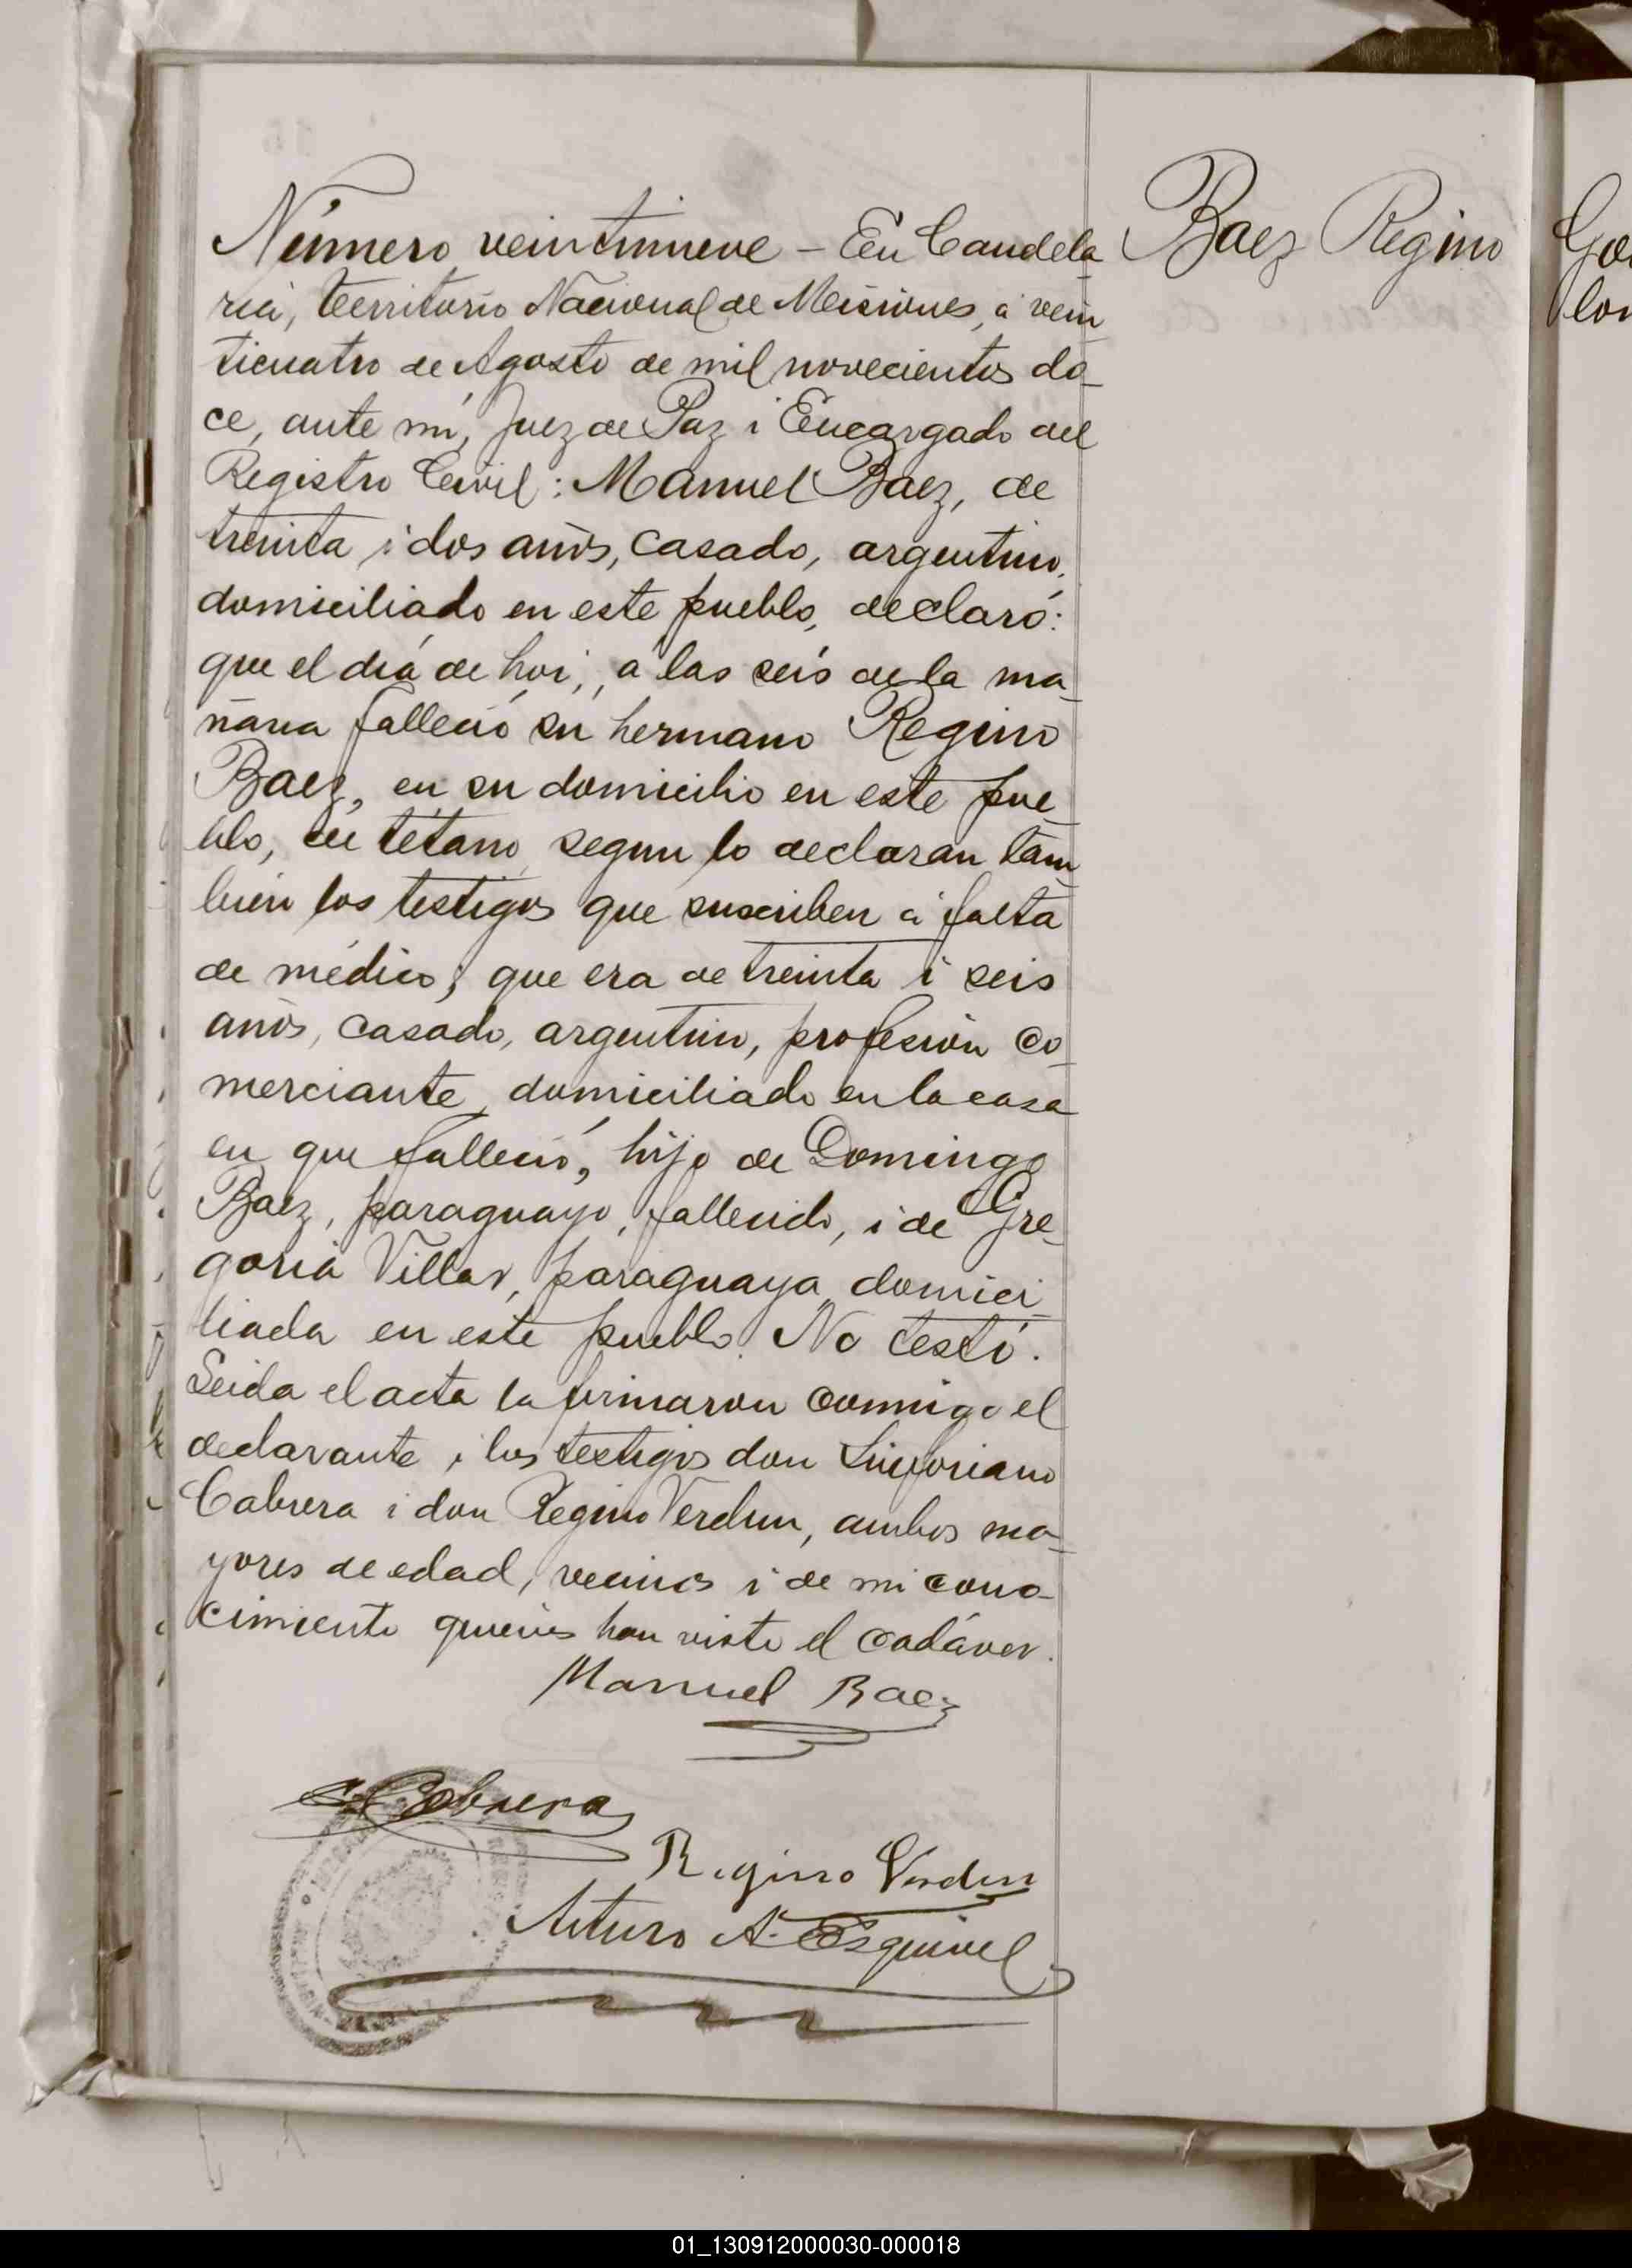 Número veintinueve – En Candela
ria, territorio Nacional de Misiones, á vein
ticuatro de Agosto de mil novecientos do_
ce, ante mí, Juez de Paz i Encargado del
Registro Civil: Manuel Baez, de
treinta i dos años, casado, argentino,
domiciliado en este pueblo, declaró:
que el día de hoi, á las seis de la ma_
ñana falleció su hermano Regino
Baez, en su domicilio en este pue_
blo, de tétano segun lo declaran tam_
bien los testigos que suscriben á falta
de médico; que era de treinta i seis
años, casado, argentino, profesión co_
merciante, domiciliado en la casa
en que falleció, hijo de Domingo
Baez, paraguayo, fallecido, i de Gre_
goria Villar, paraguaya, domici_
liada en este pueblo. No testó.
Leida el acta la firmaron conmigo el
declarante i los testigos don Sinforiano
Cabrera i don Regino Verdun, ambos ma_
yores de edad, vecinos i de mi cono_
cimiento quienes han visto el cadáver.
Manuel Baez
S. Cabrera
Regino Verdun
Arturo A. Esquivel
Baez Regino
01_130912000030-000018